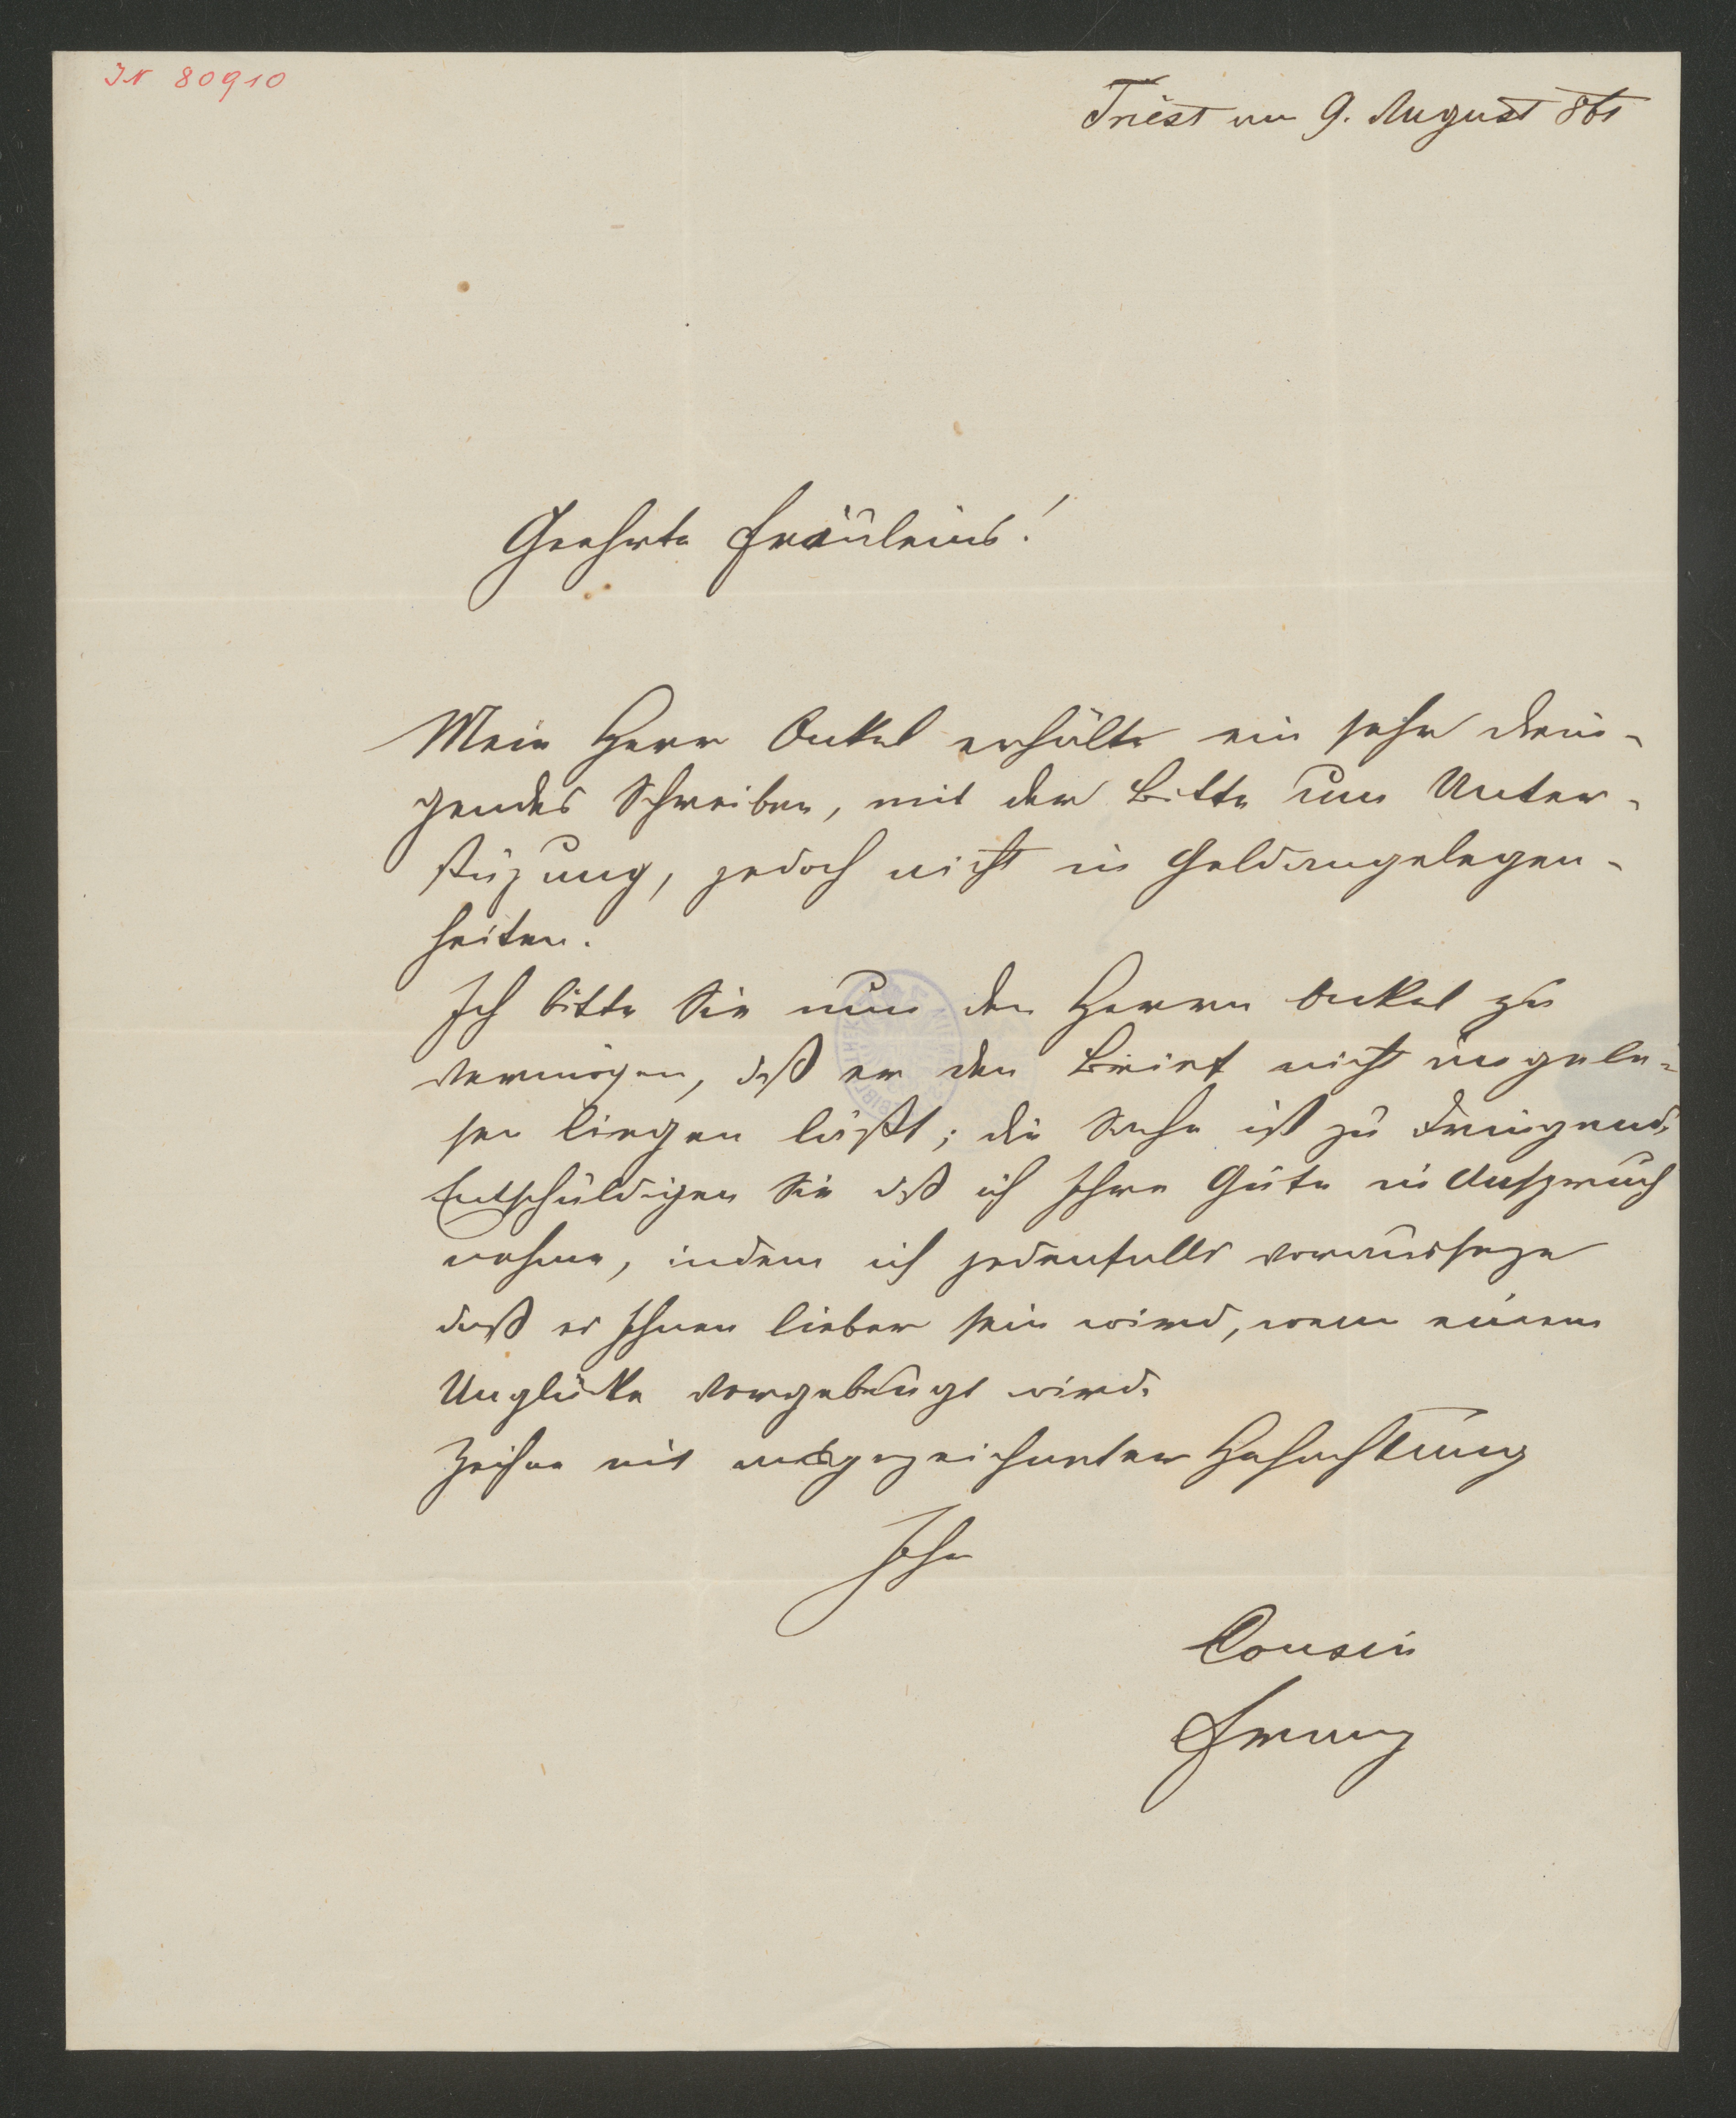 IN 80910
Triest am 9. August 861
Geehrte Fräuleins!
Mein Herr Onkel erhälte ein sehr drin-
gendes Schreiben, mit der Bitte um Unter-
stüzung, jedoch nicht in Geldangelegen-
heiten.
Ich bitte Sie nun den Herrn Onkel zu
vermögen, daß er den Brief nicht ungele-
sen liegen läßt; die Sache ist zu dringend.
Entschuldigen Sie daß ich Ihre Güte in Anspruch
nehme, indem ich jedenfalls vorausseze
daß es Ihnen lieber sein wird, wenn einem
Unglücke vorgebeugt wird.
Zeichne mit ausgezeichneter Hochachtung
Ihr
Cousin
Franz